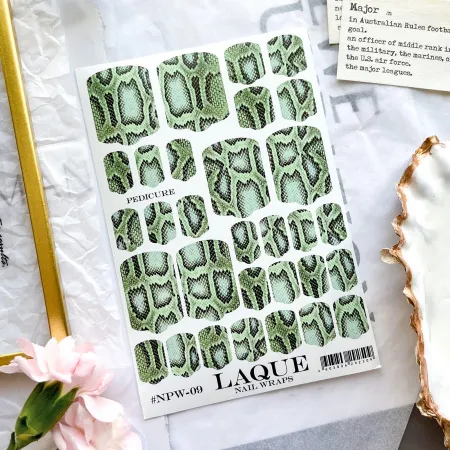 Major
in Australian Rules footba
goal.
an officer of middle rank in
the military, the marines, a
the U.S. air force.
the major leagues.
PEDICURE
#NPW-09
LAQUE
NAIL WRAPS